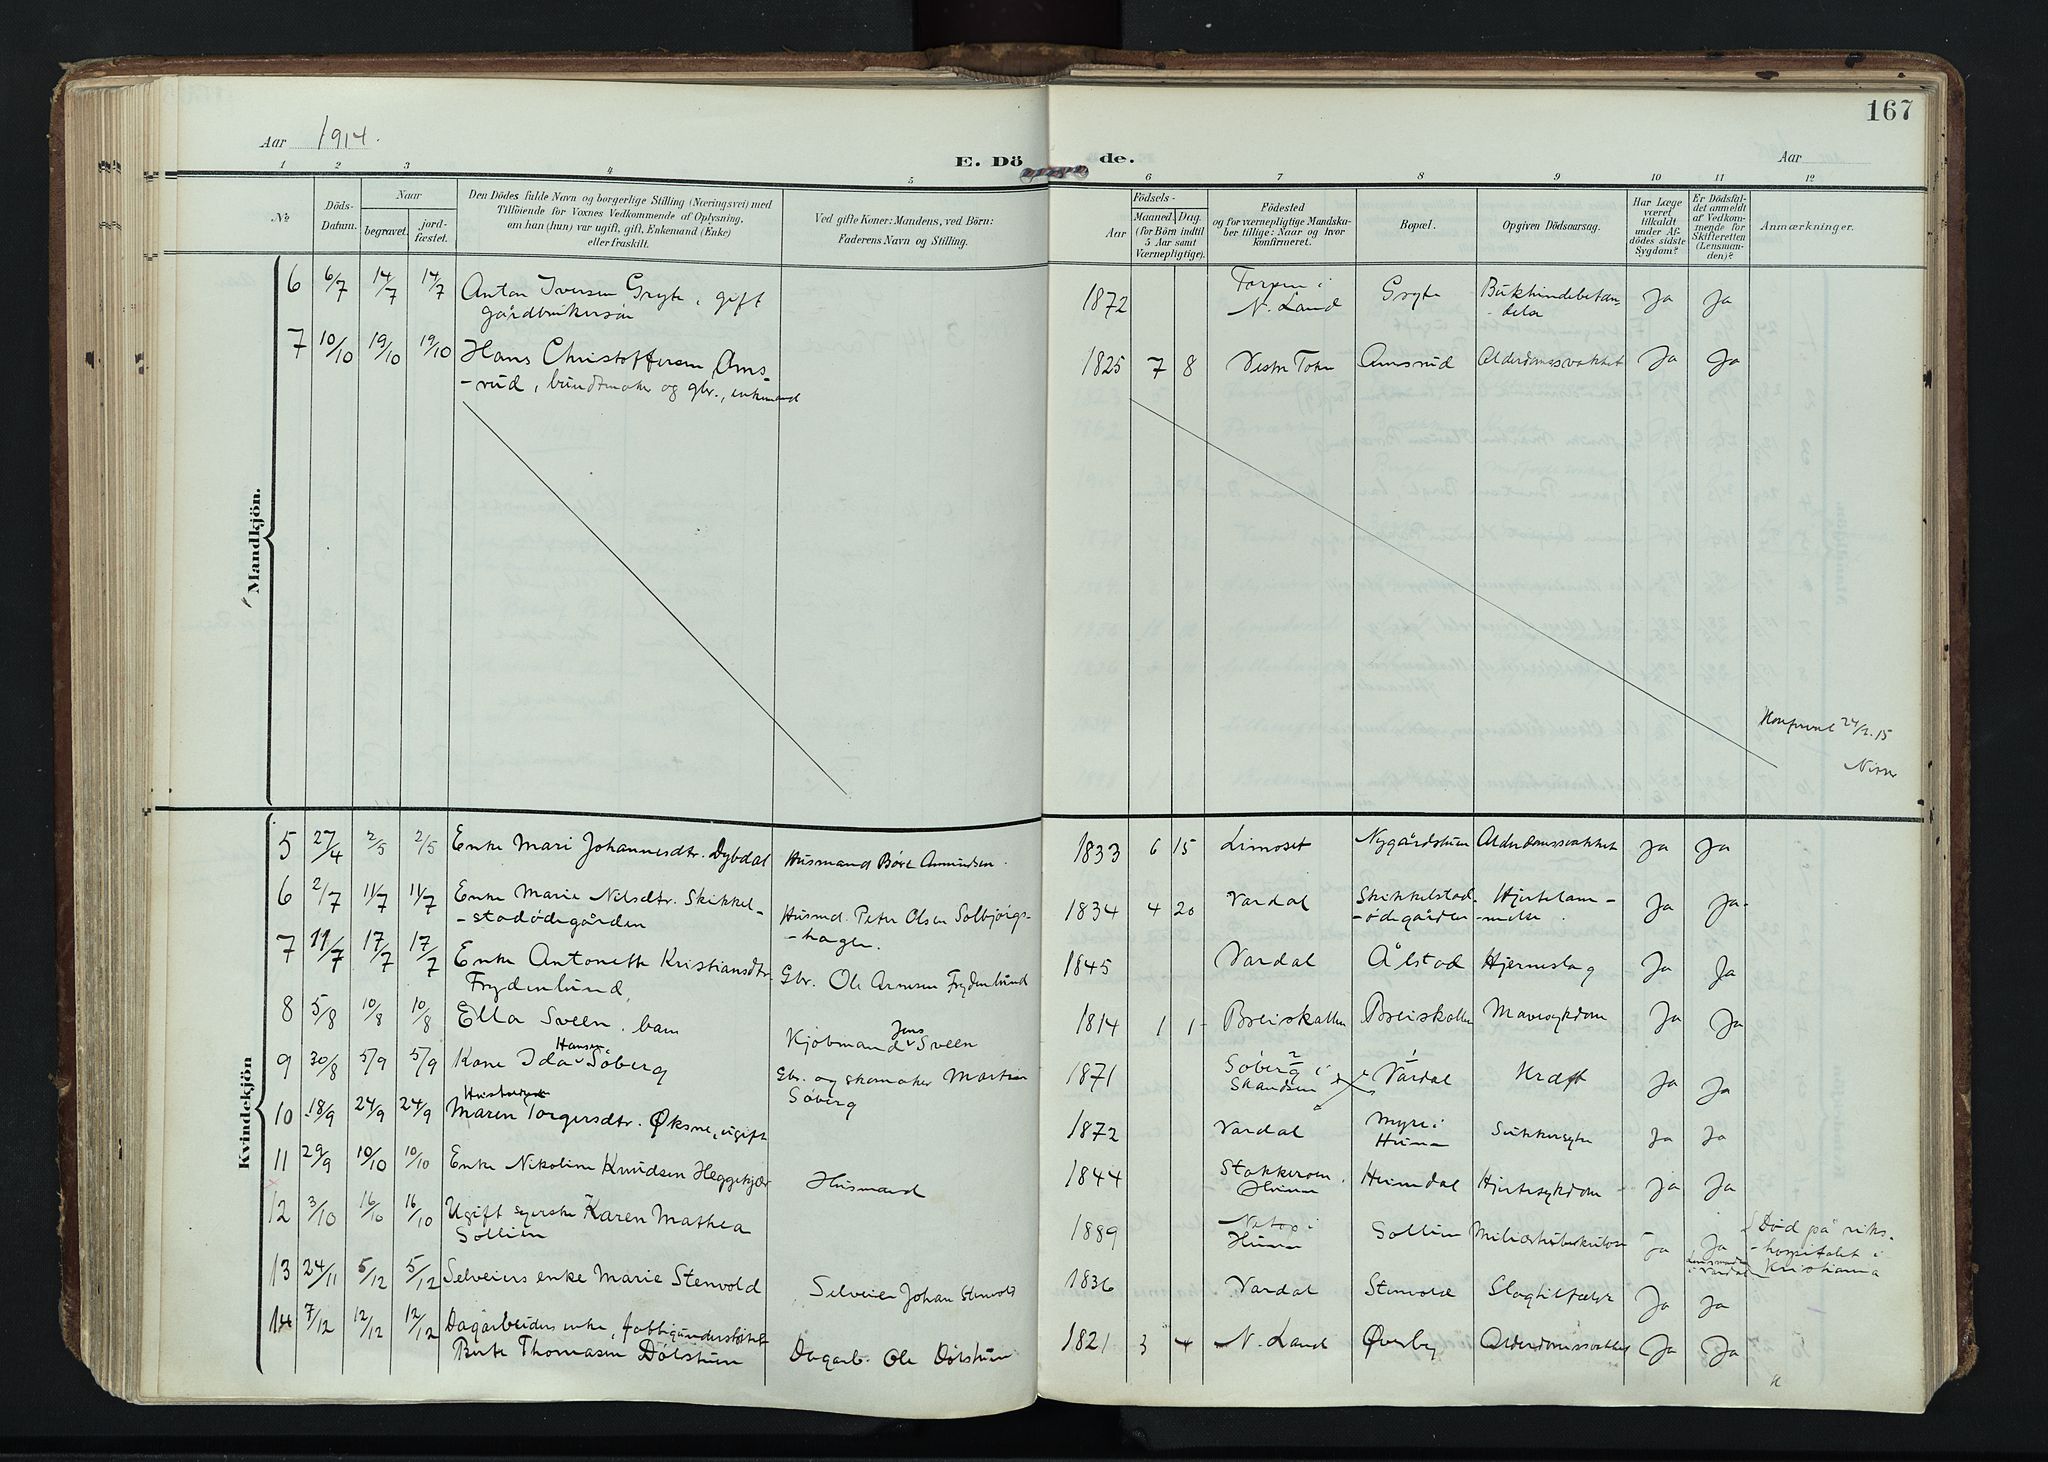 Aar 1914.
E. Dö de.
167
Aar
1 2 3 4 5 6 7 8 9 10 11 12
№
Döds-Datum.
Naar
begravet.
jord-fæstet.
Den Dödes fulde Navn og borgerlige Stilling (Næringsvei) med
Tilföiende for Voxnes Vedkommende af Oplysning,
om han (hun) var ugift, gift, Enkemand (Enke)
eller fraskilt.
Ved gifte Koner: Mandens, ved Börn:
Faderens Navn og Stilling.
Födsels-
Aar
Maaned. Dag.
(for Börn indtil
5 Aar samt
Værnepligtige).
Födested
og for værnepligtige Mandska-
ber tillige: Naar og hvor
konfirmeret.
Bopæl.
Opgiven Dödsaarsag.
Har Læge
været
tilkaldt
under Af-
dödes sidste
Sygdom?
Er Dödsfal-
det anmeldt
af Vedkom-
mende for
Skifteretten
(Lensman-
den)?
Anmærkninger.
Mandkjön.
6 6/7 14/7 14/7 Anton Iversen Gryte, gift
gårdbrukersøn
1872 Torpen i
N. Land Gryte Bukhindebetæn-
-delse Ja Ja
7 10/10 19/10 19/10 Hans Christoffersen Ams-
-rud, buntmaker og gbr., enkemand
1825 7 8 Vestre Toten Amsrud Alderdomssvakhet Ja Ja
24/2.15
Kvindekjön
5 27/4 2/5 2/5 Enke Mari Johannesdtr. Dybdal Husmand Børe Amundsen. 1833 6 15 Limoset Nygårdstuen Alderdomssvakhet Ja Ja
6 2/7 11/7 11/7 Enke Marie Nilsdtr. Skikkel-
-stadødegården Husmd. Peter Olsen Solbjørgs-
-hagen. 1834 4 20 Vardal Skikkelstad-
-ødegården Hjertelam-
-melse. Ja Ja
7 11/7 17/7 17/7 Enke Antonette Kristiansdtr.
Frydenlund, Gbr. Ole Arnesen Frydenlund 1845 Vardal Ålstad Hjerneslag Ja Ja
8 5/8 10/8 10/8 Ella Sveen, barn Kjøbmand Jens Sveen 1914 1 1 Breiskallen Breiskallen Mavesykdom Ja Ja
9 30/8 5/9 5/9 Kone Ida Hansen Søberg Gbr. og skomaker Martin
Søberg 1871 Søberg i
Skandsen Vardal Kræft Ja Ja
10 18/9 24/9 24/9 Maren Torgersdtr. Øksne, ugift 1872 Vardal Myre i
Hunn Sukkersyke Ja Ja
11 29/9 10/10 10/10 Enke Nikoline Knudsen Heggekjær Husmand 1844 Stokkeroen,
Hunn Heimdal Hjertesykdom Ja Ja
12 3/10 16/10 16/10 Ugift syerske Karen Mathea
Sollien 1889 Netop i
Hunn Sollien Miliærtuberkulose Ja Ja
Lensmanden
i Vardal
Død på riks-
-hospitalet i
Kristiania
13 24/11 5/12 5/12 Selveiers enke Marie Stenvold Selveier Johan Stenvold 1836 Vardal Stenvold Slagtilfælde Ja Ja
14 7/12 12/12 12/12 Dagarbeiders enke, fattigunderstøttet
Berte Thomasen Dølstuen Dagarb. Ole Dølstuen 1821 3 4 N. Land Øverby Alderdomssvakhet Ja Ja